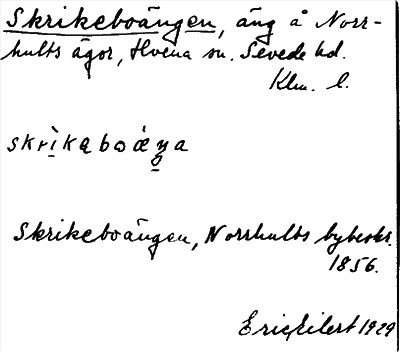 Skrikeboängen, äng å Norr-
hults ägor, Hvena sn. Sevede hd.
Klm. l.
skrìkaboǽŋa
Skrikeboängen, Norrhults bybeskr.
1856.
Eric Eilert 1929